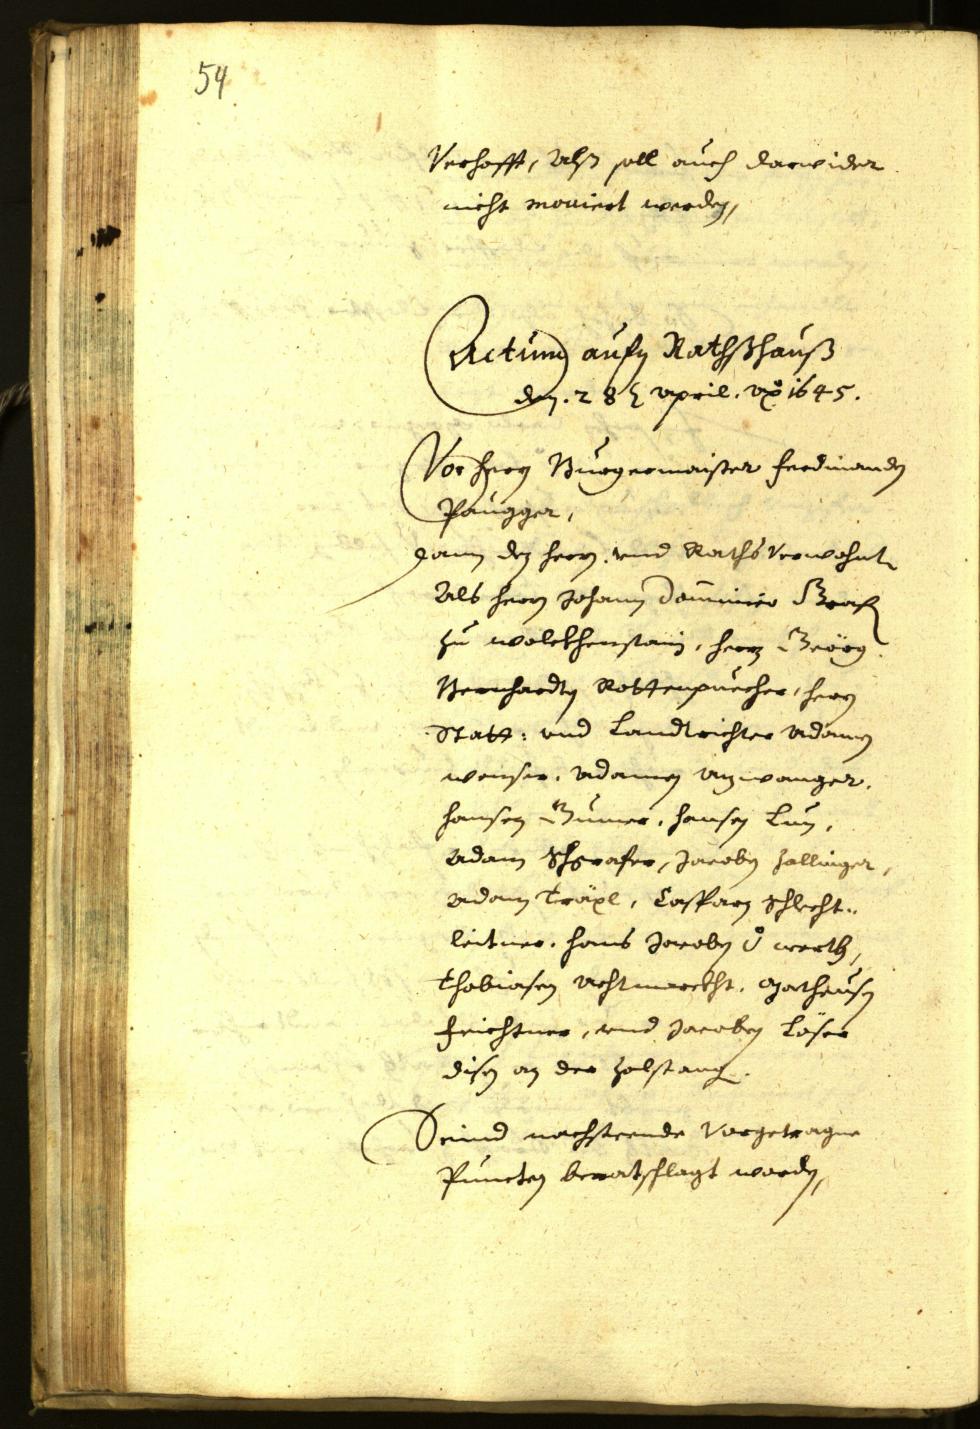 54
Verhofft, Alß soll auch darwider
nicht moviert werden,
Actum aufn Rathßhauß
den. 28 April. Aõ 1645.
Vor herrn Burgermaister Ferdinanden
Paugger,
dann den herrn. vnd Raths Verwohnt
Als herrn Johann Dominico Graf
zu wolckhenstain, herrn Geörg
Bernhardtn Rottenpuecher, herrn
Statt: vnd Landtrichter Adamen
wenser, Adamen Anwanger,
hansen Gumer, hansen Lun,
Adam Schgrafer, Jacoben Zallinger,
Adam Träxl, Casparn Schlecht:
leitner, hans Jacoben werth,
Thobiasen Achtmarckht, Matheusen
Feichtner, vnd Jacoben Löser
disen an der Zolstang.
Seind nachsteende Vorgetragne
Puncten beratschlagt worden,